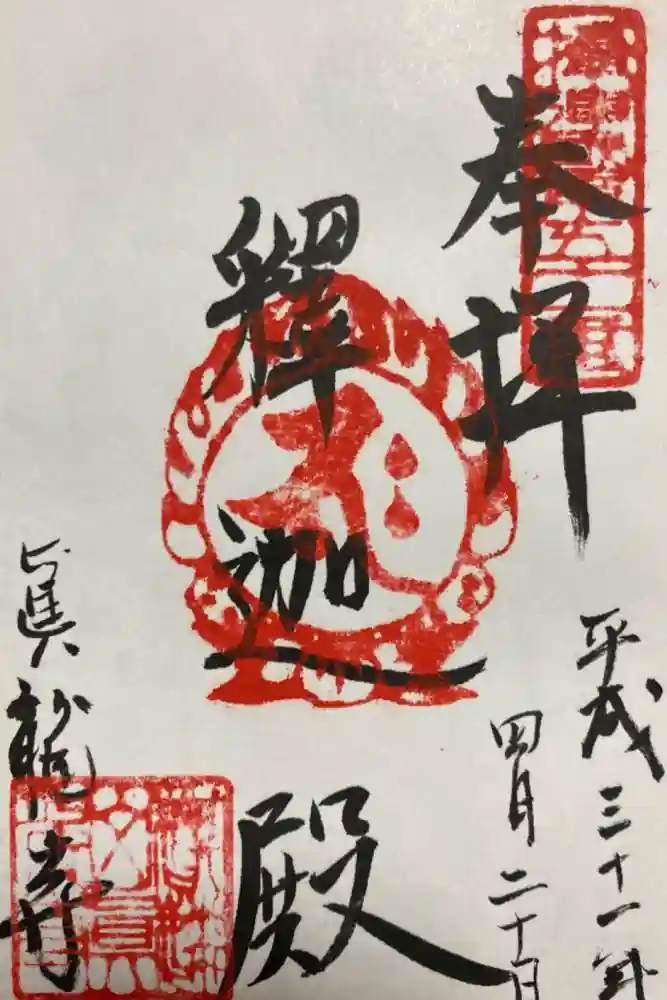 奉拝
平成三十一年
四月二十日
釋迦殿
眞龍寺